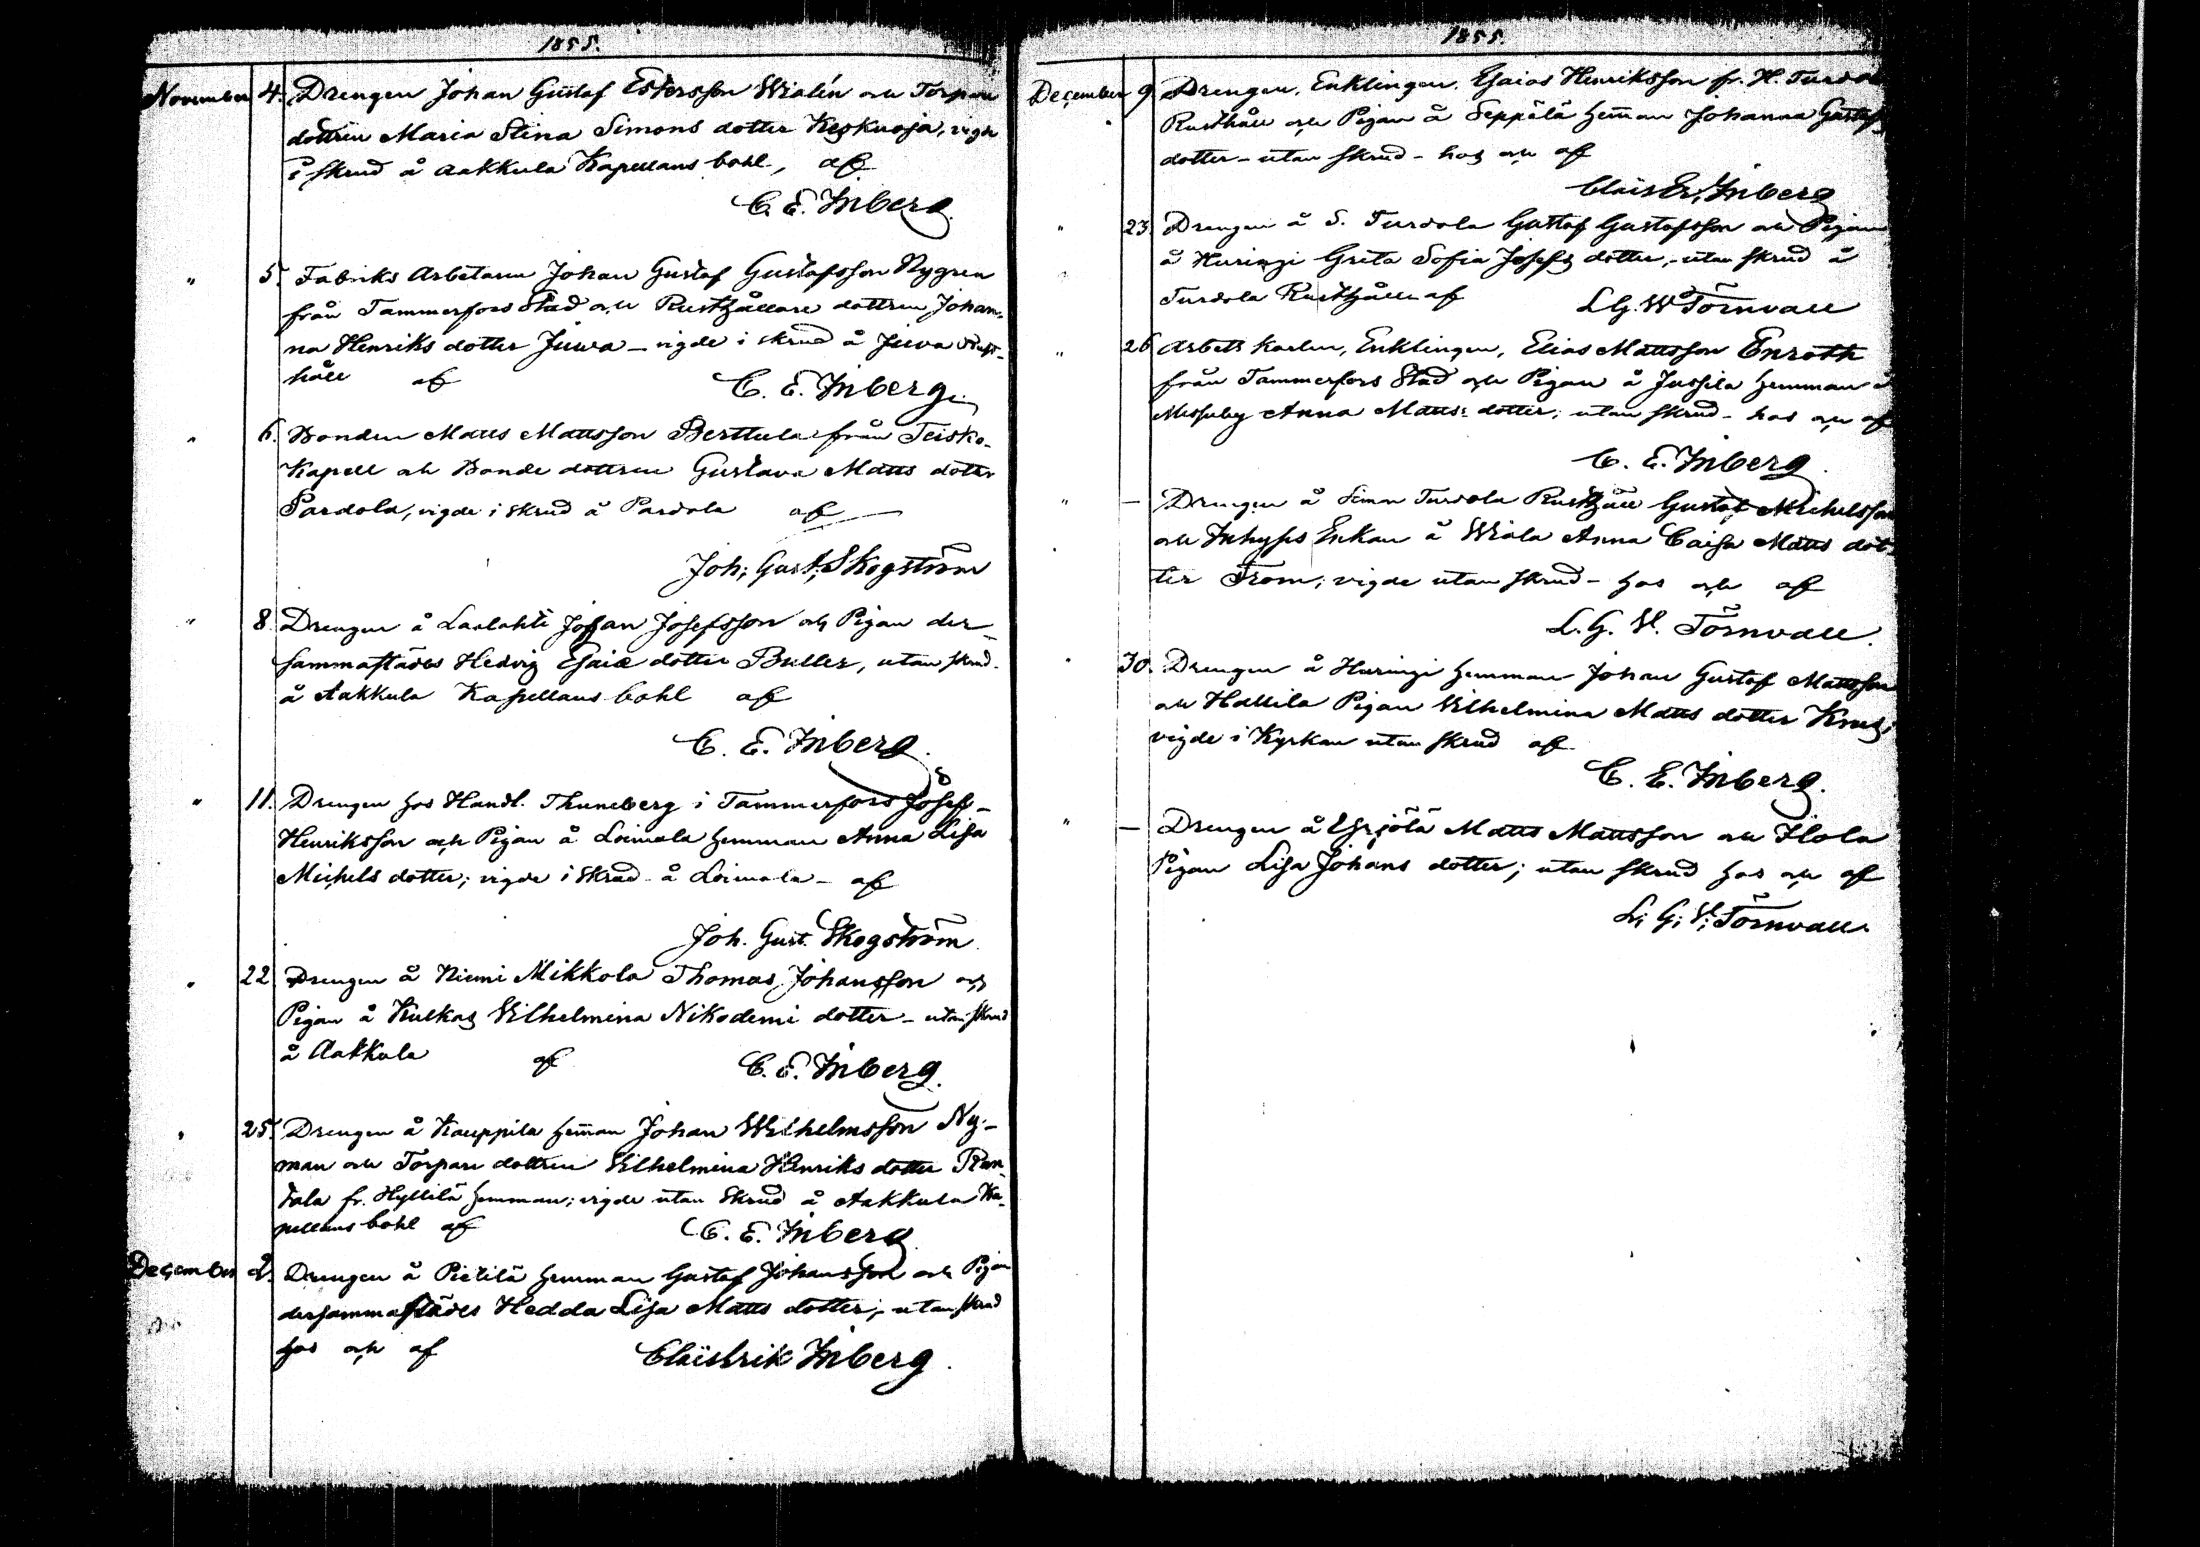 1855.
November 4. Drengen Johan Gustaf Estersson Wialén och Torpare
dottren Maria Stina Simons dotter Keskuoja, vigde
i skrud å Aakkula Kapellans bohl, af
C. E. Inberg.
" 5. Fabriks Arbetaren Johan Gustaf Gustafsson Nygren
från Tammerfors Stad och Rusthållare dottren Johan-
na Henriks dotter Juwa - vigde i skrud å Juwa Rust-
håll af C. E. Inberg.
" 6. Bonden Matts Mattsson Berttula från Teisko
Kapell och Bonde dottren Gustava Matts dotter
Pardola, vigde i skrud å Pardola af
Joh: Gust: Skogström
" 8. Drengen å Laalahti Johan Josefsson och Pigan der-
sammastädes Hedvig Esaiæ dotter Buller, utan skrud
å Aakkula Kapellans bohl af
C. E. Inberg.
" 11. Drengen hos Handl. Thuneberg i Tammerfors Josef
Henriksson och Pigan å Loimala hemman Anna Lisa
Michels dotter; vigde i skrud å Loimala - af
Joh. Gust. Skogström
" 22. Drengen å Niemi Mikkola Thomas Johansson och
Pigan å Kulkas Wilhelmina Nikodemi dotter - utan skrud
å Aakkula af C. E. Inberg.
" 25. Drengen å Kauppila heman Johan Wilhelmsson Ny-
man och Torpare dottren Wilhelmina Henriks dotter Ran-
tala fr. Hyllilä hemman; vigde utan skrud å Aakkula Ka-
pellans bohl af C. E. Inberg
December 2. Drengen å Pietilä hemman Gustaf Johansson och Pigan
dersammastädes Hedda Lisa Matts dotter; utan skrud
hos och af Claës Erik Inberg.
1855.
December 9. Drengen, Enklingen, Esaias Henriksson fr. H. Turdola
Rusthåll och Pigan å Seppälä heman Johanna Gustafs
dotter - utan skrud - hos och af
Claës Er. Inberg
" 23. Drengen å S. Turdola Gustaf Gustafsson och Pigan
å Huringi Greta Sofia Josefs dotter, - utan skrud å
Turdola Rusthåll af L. G. W Törnvall
" 26. Arbets karlen, Enklingen, Elias Mattsson Enroth
från Tammerfors Stad och Pigan å Jussila hemman å
Messuby Anna Matts: dotter; utan skrud - hos och af
C. E. Inberg.
" — Drengen å Simon Turdola Rusthåll Gustaf Michelsson
och Inhyses Enkan å Wiala Anna Caisa Matts dot-
ter From; vigde utan skrud - hos och af
L. G. W. Törnvall.
" 30. Drengen å Huringi hemman Johan Gustaf Mattsson
och Hallila Pigan Wilhelmina Matts dotter
vigde i Kyrkan utan skrud af
C. E. Inberg.
" — Drengen å Yrjölä Matts Mattsson och Ilola
Pigan Lisa Johans dotter; utan skrud hos och af
L: G: W: Törnvall.